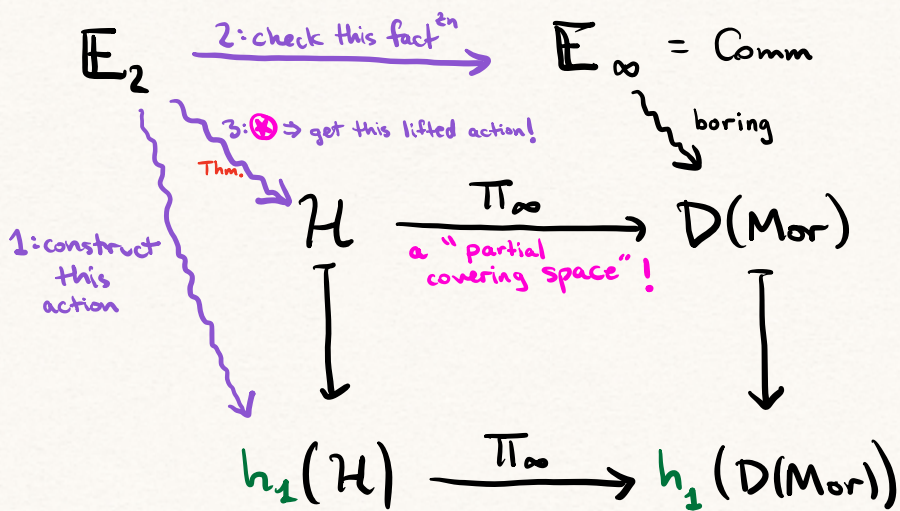 𝔼₂
2: check this fact^{zn}
𝔼∞ = Comm
3: ⊛ ⇒ get this lifted action!
boring
Thm.
H
π∞
D(Mor)
a "partial
covering space"!
1: construct
this
action
h₁(H)
π∞
h₁(D(Mor))